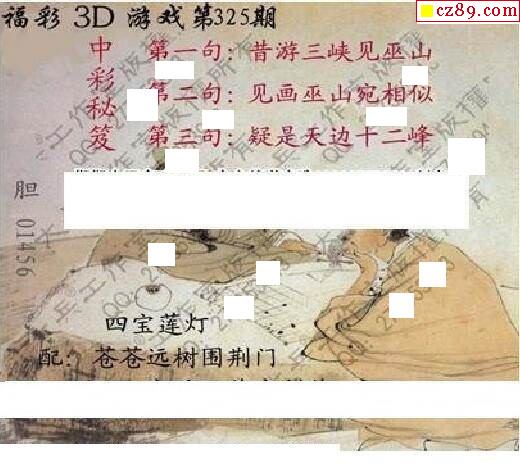 福彩 3D 游戏 第325期
cz89.com
中彩秘笈
第一句：昔游三峡见巫山
第二句：见画巫山宛相似
第三句：疑是天边十二峰
胆 01456
四宝莲灯
配：苍苍远树围荆门